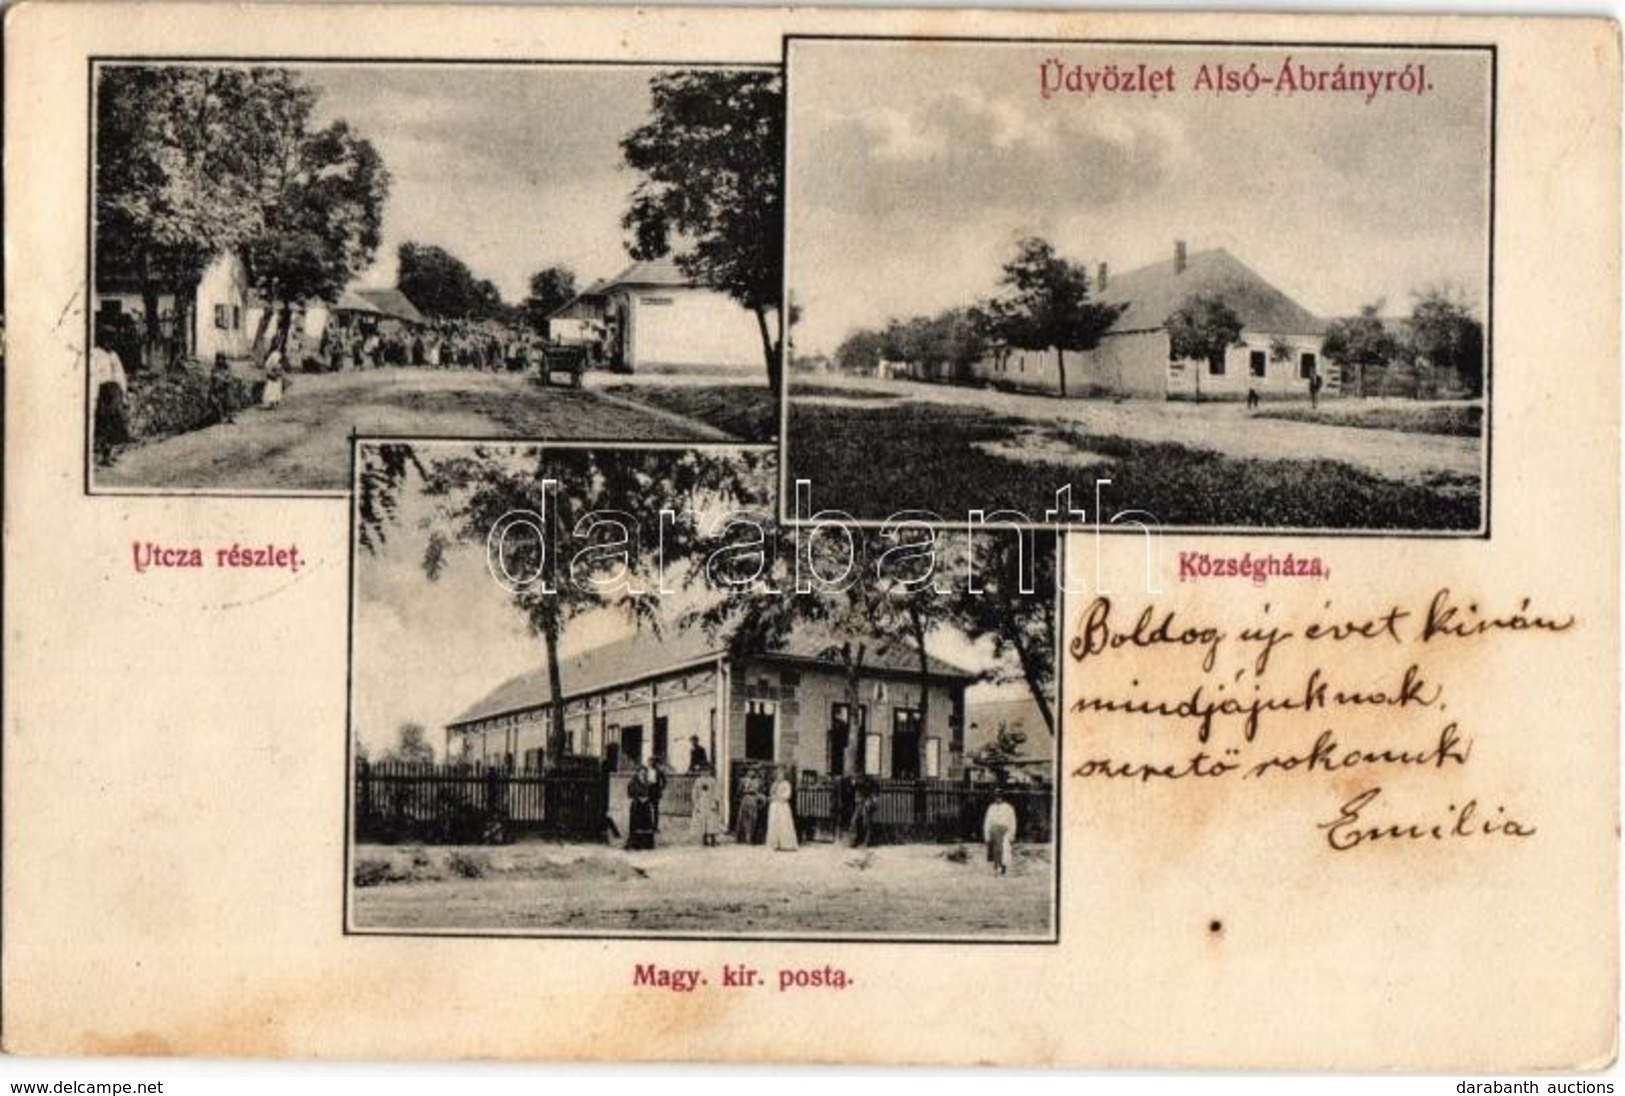 Üdvözlet Alsó-Ábrányról.
Utcza részlet.
Községháza,
Boldog új évet kiván
mindjájuknak.
szerető rokonuk
Emilia
Magy. kir. posta.
darabanth
www.delcampe.net
darabanth auctions